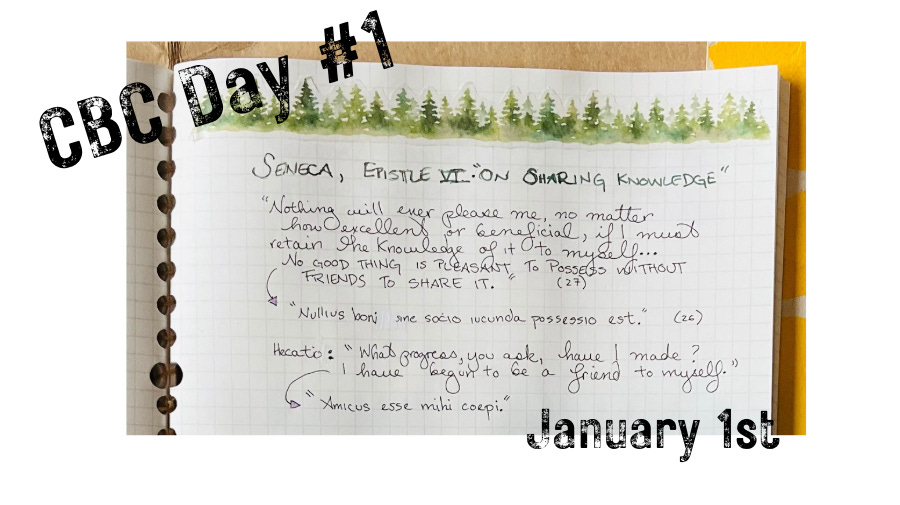 CBC Day #1
SENECA, EPISTLE VI: "ON SHARING KNOWLEDGE"
"Nothing will ever please me, no matter
how excellent or beneficial, if I must
retain the knowledge of it to myself...
NO GOOD THING IS PLEASANT TO POSSESS WITHOUT
FRIENDS TO SHARE IT."
(27)
"Nullius boni sine socio iucunda possessio est." (26)
Hecato: "What progress, you ask, have I made?
I have begun to be a friend to myself."
"Amicus esse mihi coepi."
January 1st